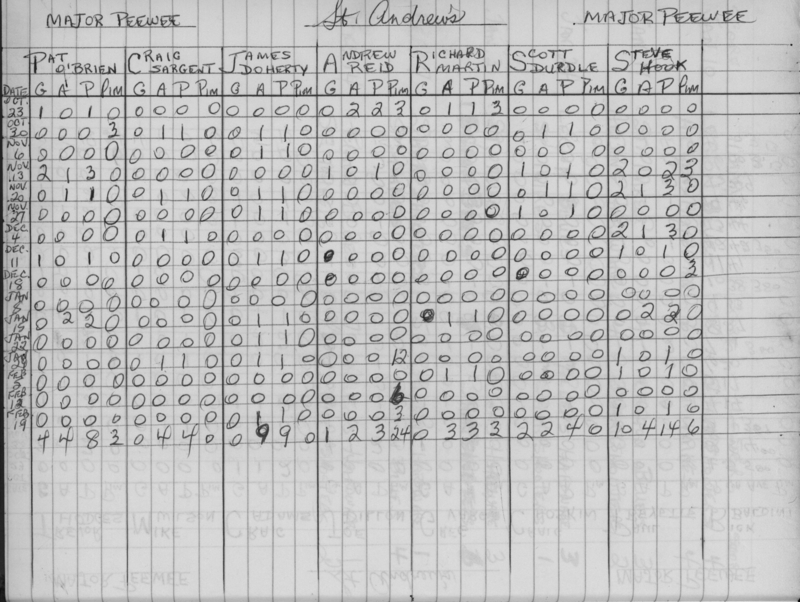 MAJOR PEEWEE St. Andrew's MAJOR PEEWEE
PAT CRAIG JAMES ANDREW RICHARD SCOTT STEVE
O'BRIEN SARGENT DOHERTY REID MARTIN DURDLE HOOK
DATE G A P PIM G A P PIM G A P PIM G A P PIM G A P PIM G A P PIM G A P PIM
OCT. 23 1 0 1 0 0 0 0 0 0 0 0 0 0 2 2 3 0 1 1 3 0 0 0 0 0 0 0 0
OCT 30 0 0 0 3 0 1 1 0 0 1 1 0 0 0 0 0 0 0 0 0 0 1 1 0 0 0 0 0
NOV 6 0 0 0 0 0 0 0 0 0 1 1 0 0 0 0 0 0 0 0 0 0 0 0 0 0 0 0 0
NOV 13 2 1 3 0 0 0 0 0 0 0 0 0 1 0 1 0 0 0 0 0 1 0 1 0 2 0 2 3
NOV 20 0 1 1 0 0 1 1 0 0 1 1 0 0 0 0 0 0 0 0 0 0 1 1 0 2 1 3 0
NOV 27 0 0 0 0 0 0 0 0 0 1 1 0 0 0 0 0 0 0 0 0 1 0 1 0 0 0 0 0
DEC 4 0 0 0 0 0 1 1 0 0 0 0 0 0 0 0 0 0 0 0 0 0 0 0 0 2 1 3 0
DEC. 11 1 0 1 0 0 0 0 0 0 1 1 0 0 0 0 0 0 0 0 0 0 0 0 0 1 0 1 0
DEC 18 0 0 0 0 0 0 0 0 0 0 0 0 0 0 0 0 0 0 0 0 0 0 0 0 0 0 0 3
JAN 8 0 0 0 0 0 0 0 0 0 0 0 0 0 0 0 0 0 0 0 0 0 0 0 0 0 0 0 0
JAN 15 0 2 2 0 0 0 0 0 0 1 1 0 0 0 0 0 0 1 1 0 0 0 0 0 0 2 2 0
JAN 22 0 0 0 0 0 0 0 0 0 1 1 0 0 0 0 0 0 0 0 0 0 0 0 0 0 0 0 0
JAN 29 0 0 0 0 0 1 1 0 0 1 1 0 0 0 0 12 0 0 0 0 0 0 0 0 1 0 1 0
FEB 5 0 0 0 0 0 0 0 0 0 0 0 0 0 0 0 0 0 1 1 0 0 0 0 0 1 0 1 0
FEB 12 0 0 0 0 0 0 0 0 0 0 0 0 0 0 0 6 0 0 0 0 0 0 0 0 0 0 0 0
FEB 19 0 0 0 0 0 0 0 0 0 1 1 0 0 0 0 3 0 0 0 0 0 0 0 0 1 0 1 0
4 4 8 3 0 4 4 0 0 9 9 0 1 2 3 24 0 3 3 3 2 2 4 0 10 4 14 6